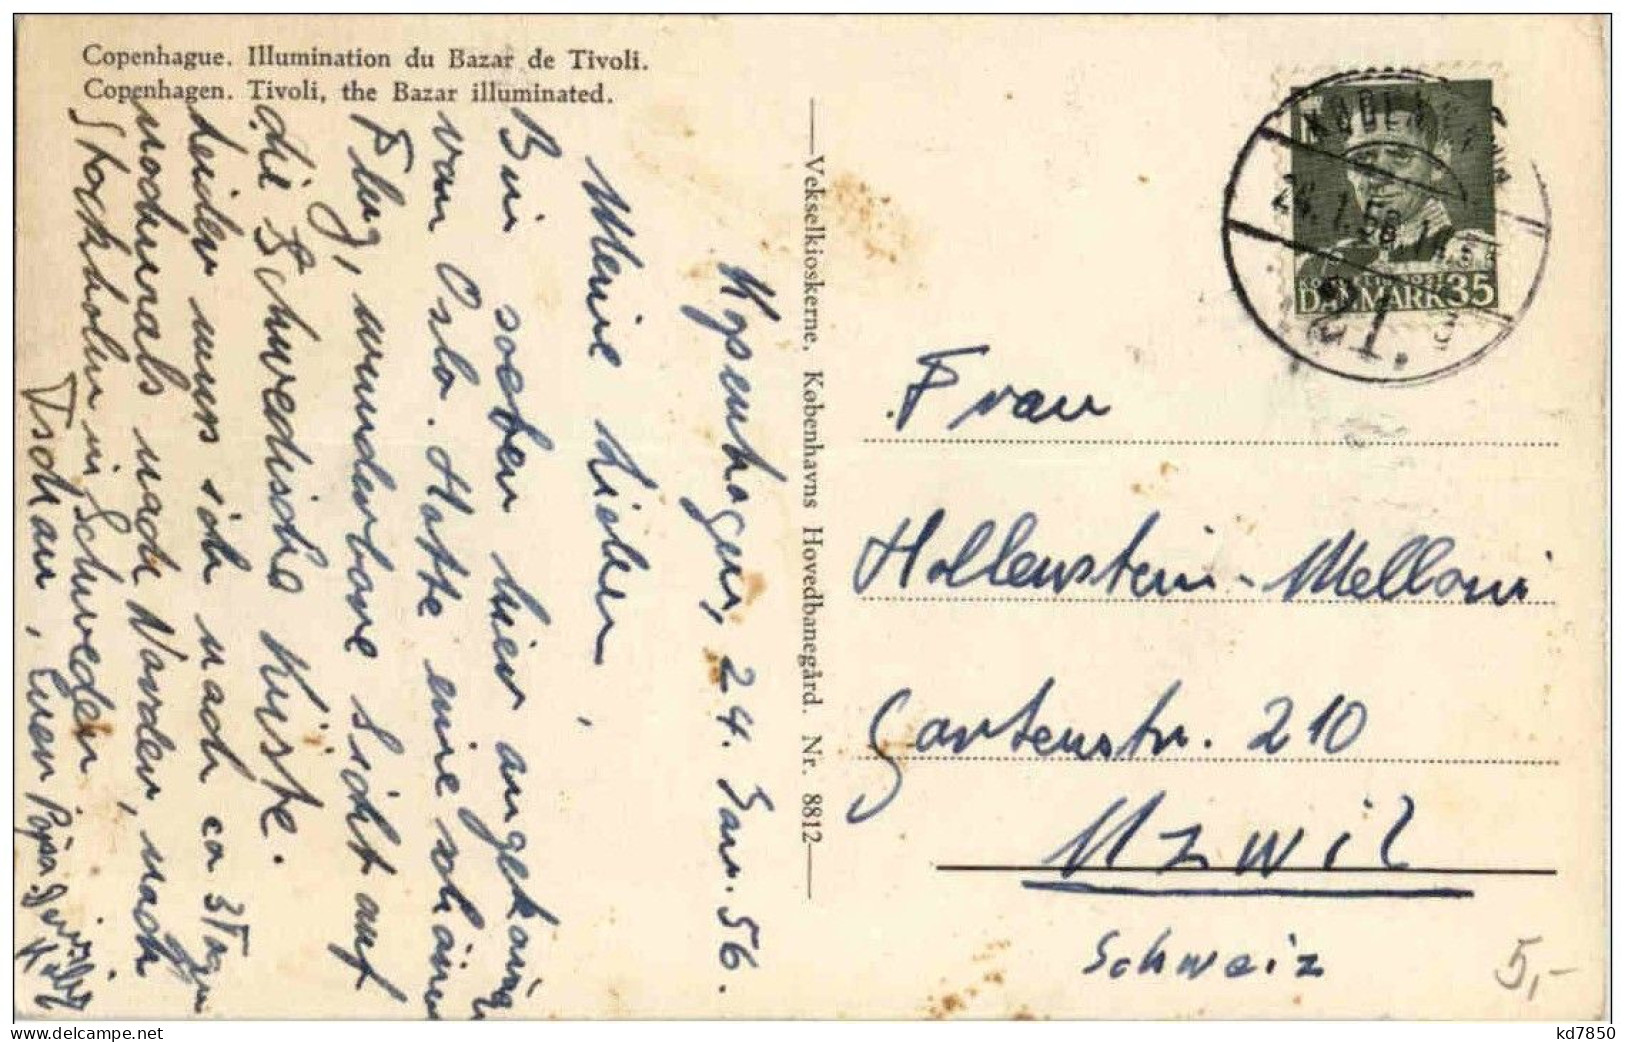 Copenhague. Illumination du Bazar de Tivoli.
Copenhagen. Tivoli, the Bazar illuminated.
Kopenhagen, 24. Jan. 56.
Meine Lieben,
Bin soeben hier angekommen
von Oslo. Hatte eine schönen
Flug, wunderbare Sicht auf
die Schwedische Küste.
Leider muss ich nach ca 3 Tagen
nochmals nach Norden, nach
Stockholm in Schweden
Tschau, Euer Papa
Vekselkioskerne, Københavns Hovedbanegård. Nr. 8812
KØBENHAVN
24.1.56.
21.
DANMARK 35
Frau
Hollenstein-Melloni
Gartenstr. 210
Uzwil
Schweiz
5,-
kd7850